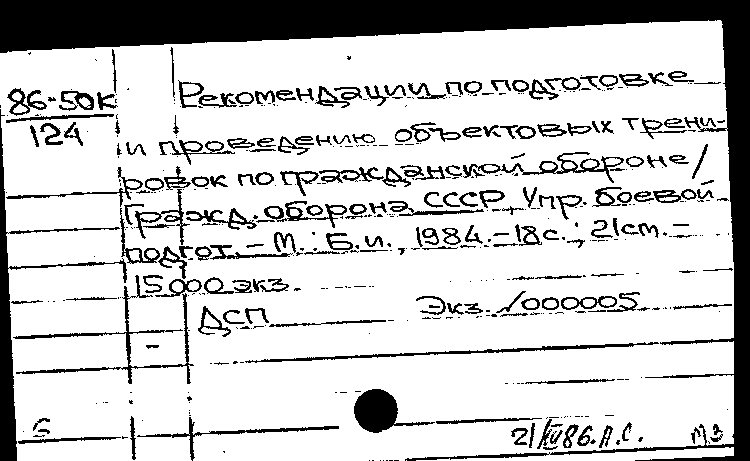 86-50к
124
Рекомендации по подготовке
и проведению объектовых трени-
ровок по гражданской обороне/
Гражд. оборона СССР, Упр. боевой
подгот. – М.: Б.и., 1984.–18с.; 21см.–
15.000 экз.
ДСП Экз. №000005
–
Б
21/XII 86. А.С. МЗ